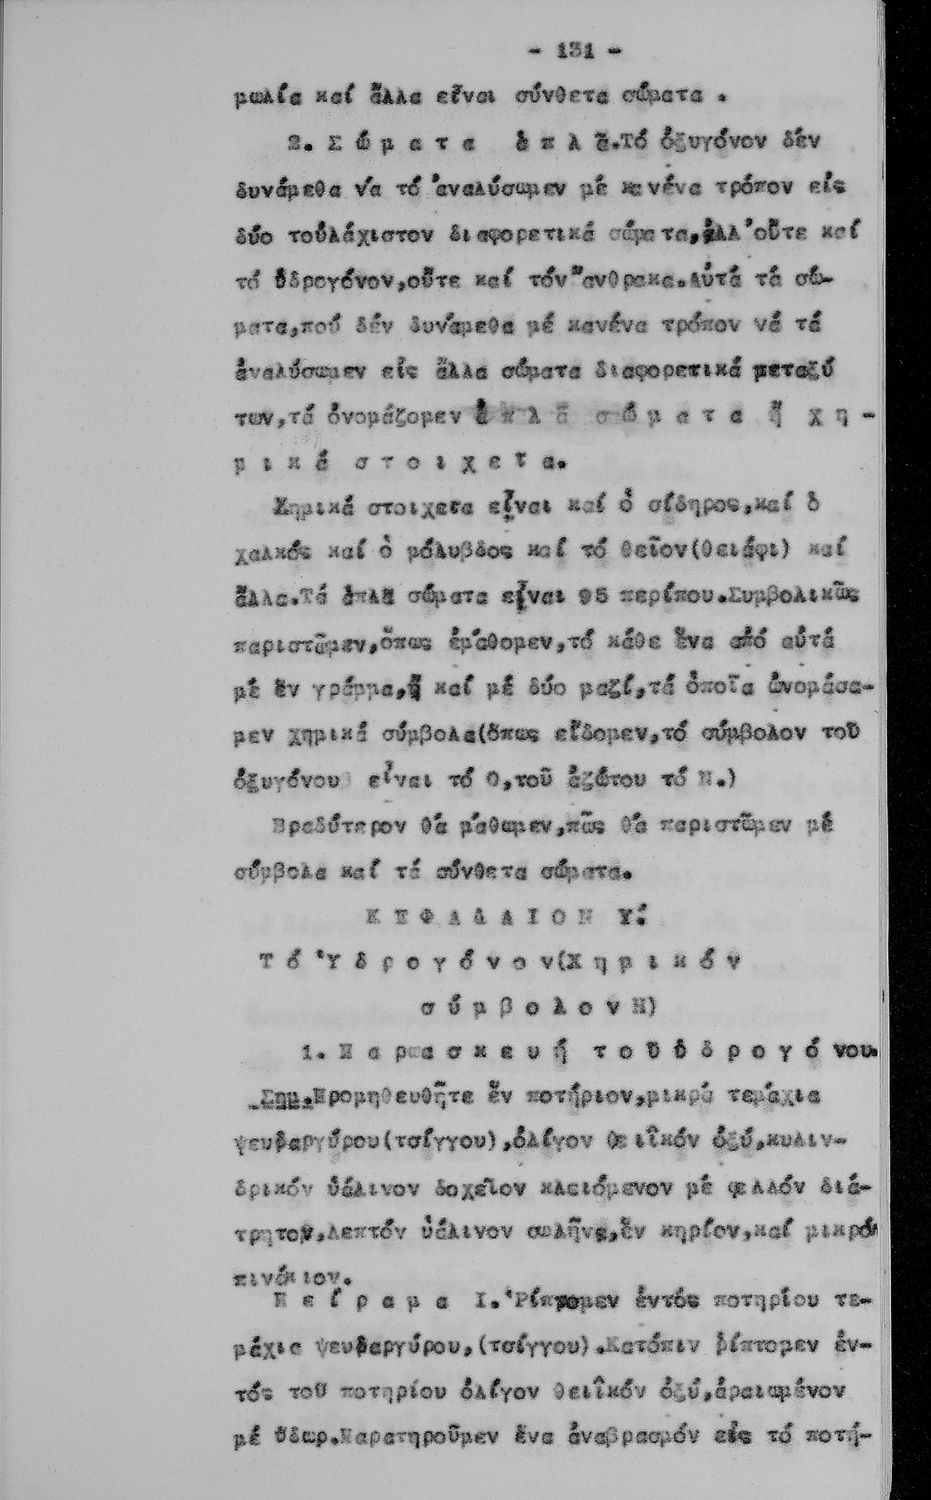 - 131 -
μωλία καί ἄλλα εἶναι σύνθετα σώματα .
2. Σ ώ μ α τ α ἁ π λ ᾶ.Τό ὀξυγόνον δέν
δυνάμεθα νά τό ἀναλύσωμεν μέ κανένα τρόπον εἰς
δύο τοὐλάχιστον διαφορετικά σώματα,ἀλλ'οὔτε καί
τό ὑδρογόνον,οὔτε καί τόν ἄνθρακα.Αὐτά τά σώ-
ματα,πού δέν δυνάμεθα μέ κανένα τρόπον νά τά
ἀναλύσωμεν εἰς ἄλλα σώματα διαφορετικά μεταξύ
των,τά ὀνομάζομεν ἁ π λ ᾶ σ ώ μ α τ α ἤ χ η -
μ ι κ ά σ τ ο ι χ ε ῖ α.
Χημικά στοιχεῖα εἶναι καί ὁ σίδηρος,καί ὁ
χαλκός καί ὁ μόλυβδος καί τό θεῖον(θειάφι) καί
ἄλλα.Τά ἁπλᾶ σώματα εἶναι 95 περίπου.Συμβολικῶς
παριστῶμεν,ὅπως ἐμάθομεν,τό κάθε ἕνα ἀπό αὐτά
μέ ἕν γράμμα,ἤ καί μέ δύο μαζί,τά ὁποῖα ὠνομάσα-
μεν χημικά σύμβολα(ὅπως εἴδομεν,τό σύμβολον τοῦ
ὀξυγόνου εἶναι τό Ο,τοῦ ἀζώτου τό Ν.)
Βραδύτερον θά μάθωμεν,πῶς θά παριστῶμεν μέ
σύμβολα καί τά σύνθετα σώματα.
Κ Ε Φ Α Λ Α Ι Ο Ν Υ΄.
Τ ό Ὑ δ ρ ο γ ό ν ο ν(Χ η μ ι κ ό ν
σ ύ μ β ο λ ο ν Η)
1. Π α ρ α σ κ ε υ ή τ ο ῦ ὑ δ ρ ο γ ό νου.
Σημ.Προμηθευθῆτε ἕν ποτήριον,μικρά τεμάχια
ψευδαργύρου(τσίγγου),ὀλίγον θειϊκόν ὀξύ,κυλιν-
δρικόν ὑάλινον δοχεῖον κλειόμενον μέ φελλόν διά-
τρητον,λεπτόν ὑάλινον σωλῆνα,ἕν κηρίον,καί μικρόν
πινάκιον.
Π ε ί ρ α μ α Ι.Ῥίπτομεν ἐντός ποτηρίου τε-
μάχια ψευδαργύρου,(τσίγγου).Κατόπιν ρίπτομεν ἐν-
τός τοῦ ποτηρίου ὀλίγον θειϊκόν ὀξύ,ἀραιωμένον
μέ ὕδωρ.Παρατηροῦμεν ἕνα ἀναβρασμόν εἰς τό ποτή-